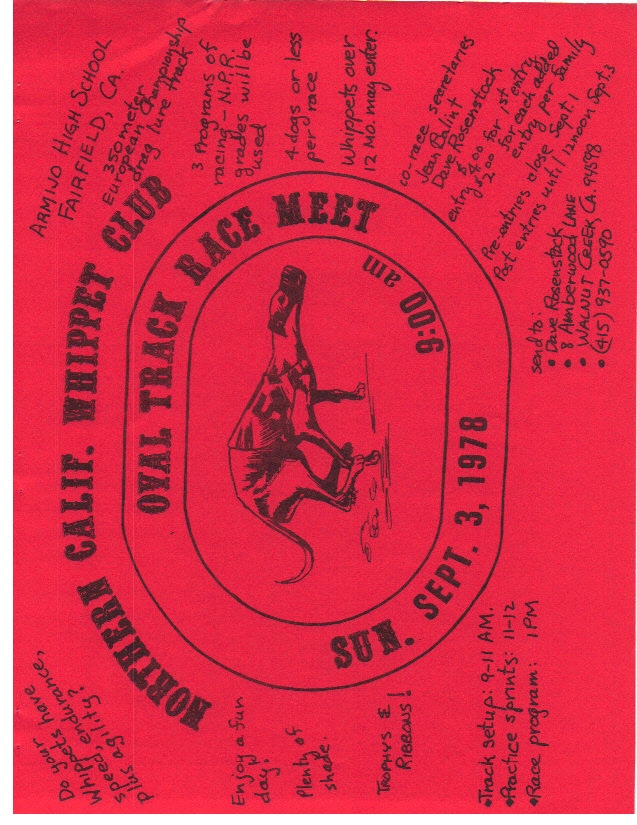 Do your
Whippets have
speed, endurance,
plus agility?
NORTHERN CALIF. WHIPPET CLUB
ARMIJO HIGH SCHOOL
FAIRFIELD, CA.
350 meter
European Championship
drag lure track
3 Programs of
racing - N.P.R.
grades will be
used
4 dogs or less
per race
Whippets over
12 MO. may enter.
OVAL TRACK RACE MEET
9:00 am
SUN. SEPT. 3, 1978
Enjoy a fun
day!
Plenty of
shade.
TROPHYS &
RIBBONS!
•Track setup: 9-11 AM.
•Practice sprints: 11-12
•Race program: 1PM
co-race secretaries
Jean Balint
Dave Rosenstock
entry $4.00 for 1st entry
$2.00 for each added
entry per family
Pre-entries close Sept. 1
Post entries until 12noon Sept. 3
send to:
• Dave Rosenstock
• 8 Amberwood LANE
• WALNUT CREEK CA. 94598
• (415) 937-0590